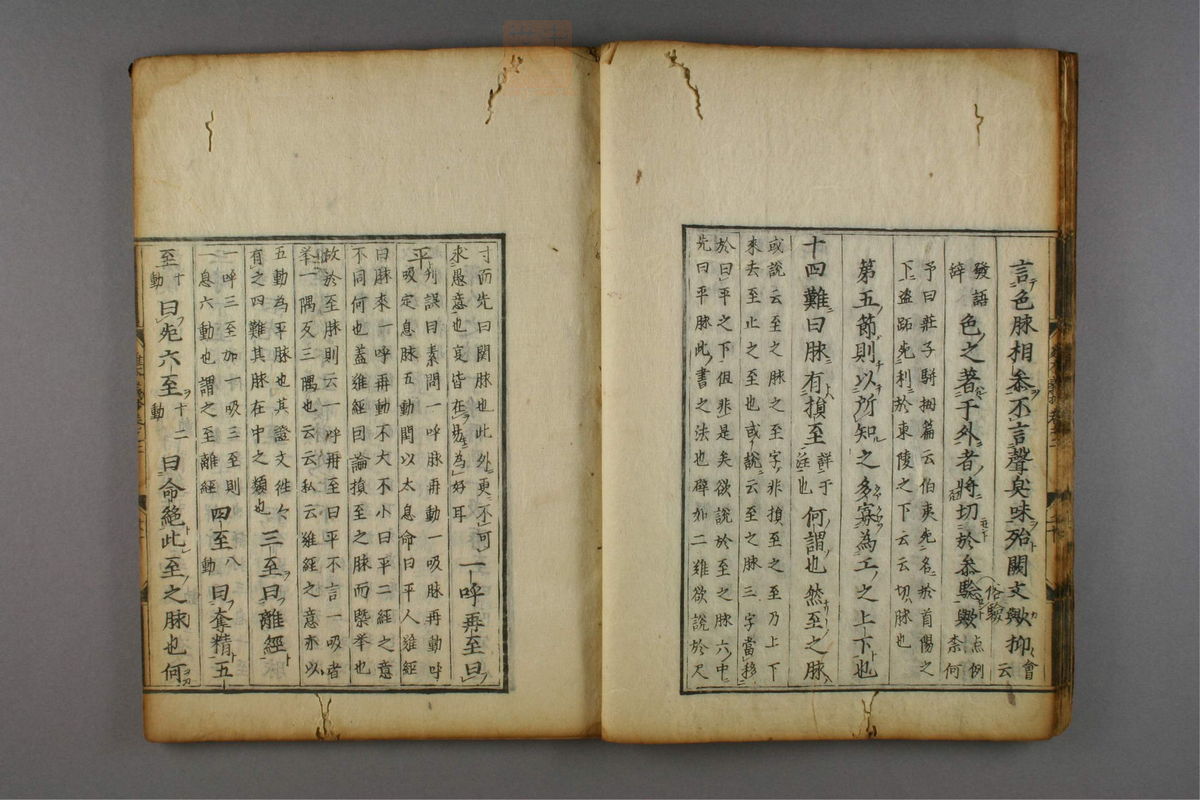 言色脉相叅不言聲臭味殆闕文歟抑會云
發語辞色之著于外者將切於叅驗歟点例柰何俗驗
予曰莊子駢拇篇云伯夷死名於首陽之
下盗跖死利於東陵之下云云切脉也
第五節則以所知之多寡為工之上下也
十四難曰脉有損至詳于註也何謂也然至之脉
或說云至之脉之至字非損至之至乃上下
來去至止之至也或說云至之脉三字當移
於曰平之下但非是矣欲說於至之脉六中
先曰平脉此書之法也礕如二難欲說於尺
寸而先曰関脉也此外更不可
求愚意也㝡皆在為好耳一呼再至曰
平列誤曰素問一呼脉再動一吸脉再動呼
吸定息脉五動閏以太息命曰平人難經
曰脉來一呼再動不大不小曰平二經之意
不同何也蓋難經曰論損至之脉而槩举也
故於至脉則云一呼再至曰平不言一吸者
举一隅反三隅也云云私云難經之意亦以
五動為平脉也其證文徃々
有之四難其脉在中之類也三至曰離經
一呼三至加一吸三至則
一息六動也謂之至離經四至八動曰奪精五
至十動曰死六至十二動曰命絶此至之脉也何